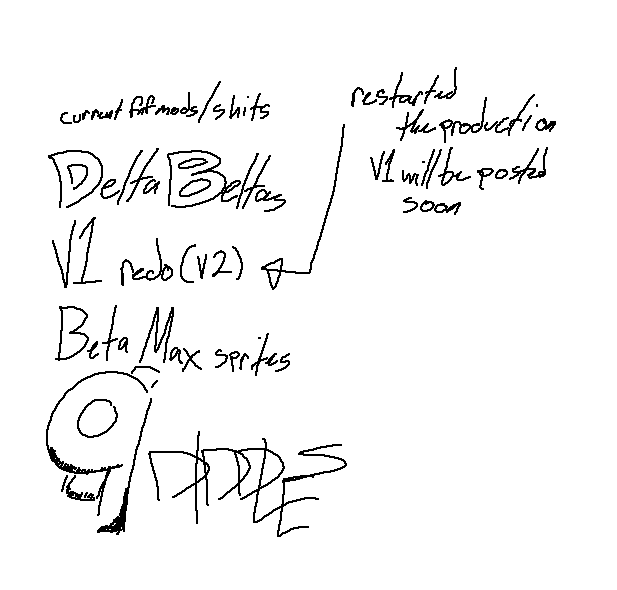 current fnf mods/shits
Delta Beltas
V1 redo (V2)
Beta Max sprites
9
restarted
the production
V1 will be posted
soon